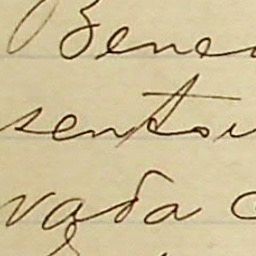 Bene
sentou
vada